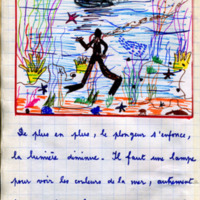 De plus en plus, le plongeur s'enfonce,
la lumière diminue. Il faut une lampe
pour voir les couleurs de la mer, autrement